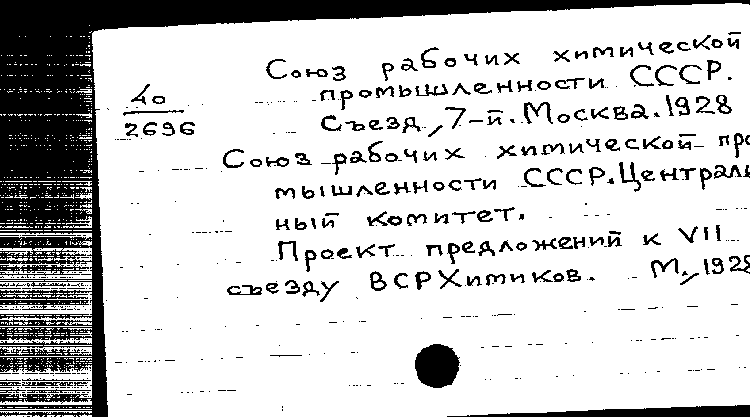 Союз рабочих химической
промышленности СССР.
Съезд, 7-й. Москва. 1928
40
2696
Союз рабочих химической про
мышленности СССР. Централь
ный комитет.
Проект предложений к VII
съезду ВСРХимиков. М., 1928